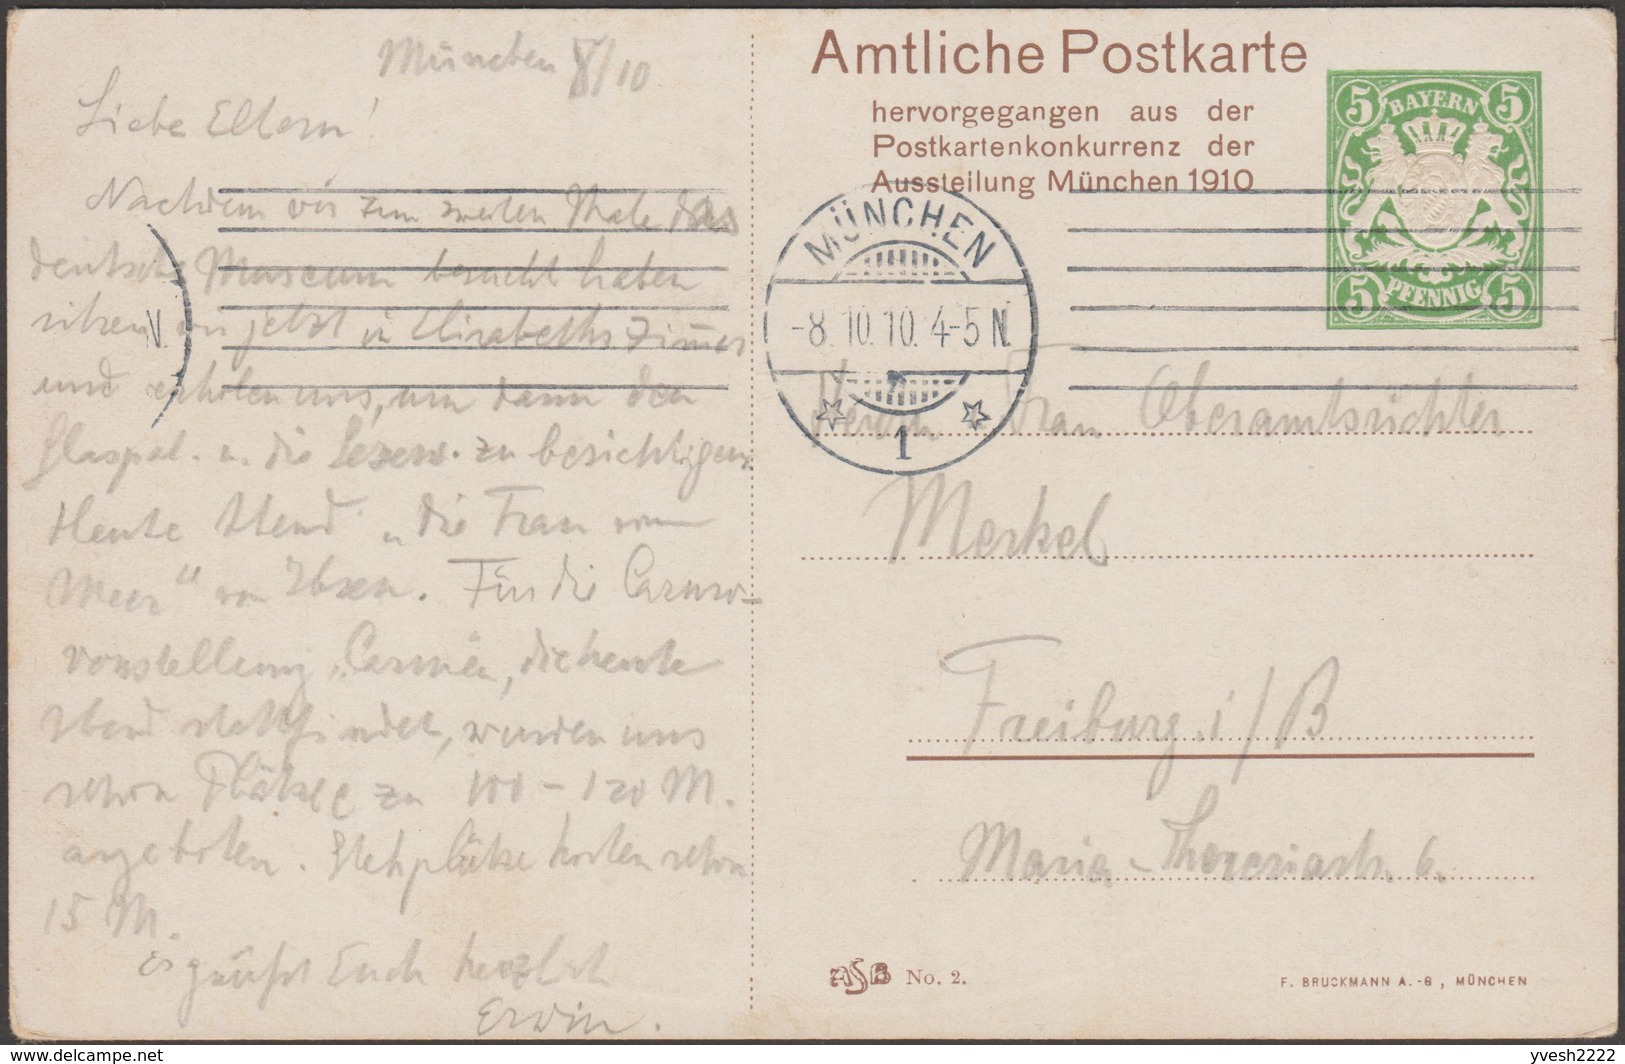 München 8/10
Liebe Eltern!
Nachdem wir zum zweiten Male das
deutsche Museum besucht haben
sitzen wir jetzt in Elisabeths Zimmer
und erholen uns, um dann den
Glaspal. u. die Sezess. zu besichtigen.
Heute Abend „die Frau vom
Meer“ von Ibsen. Für die Caruso-
vorstellung „Carmen, die heute
Abend stattfindet, wurden uns
schon Plätze zu 100 – 120 M.
angeboten. Stehplätze kosten schon
15 M.
Es grüsst Euch herzlich
Erwin.
Amtliche Postkarte
hervorgegangen aus der
Postkartenkonkurrenz der
Ausstellung München 1910
5 BAYERN 5
5 PFENNIG 5
MÜNCHEN
-8.10.10. 4-5 N.
1
N.
Frau Oberamtsrichter
Merkel
Freiburg i/B
Maria-Theresiastr. 6.
ASB No. 2.
F. BRUCKMANN A.-G., MÜNCHEN
delcampe.net
yvesh2222